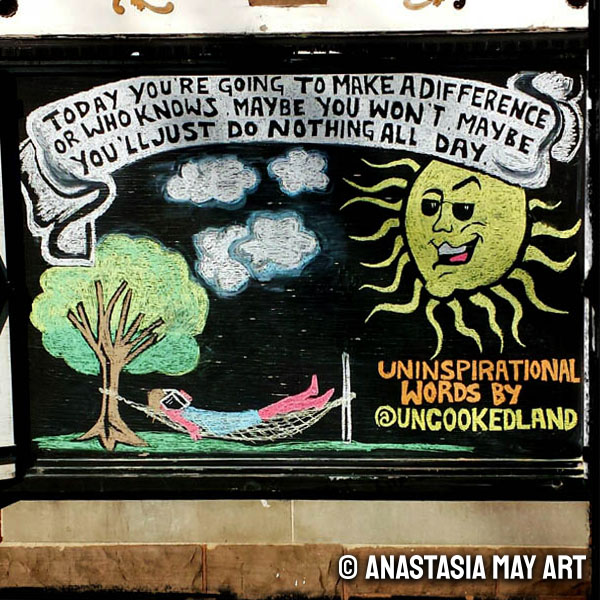 TODAY YOU'RE GOING TO MAKE A DIFFERENCE
OR WHO KNOWS MAYBE YOU WON'T. MAYBE
YOU'LL JUST DO NOTHING ALL DAY.
UNINSPIRATIONAL
WORDS BY
@UNCOOKEDLAND
© ANASTASIA MAY ART